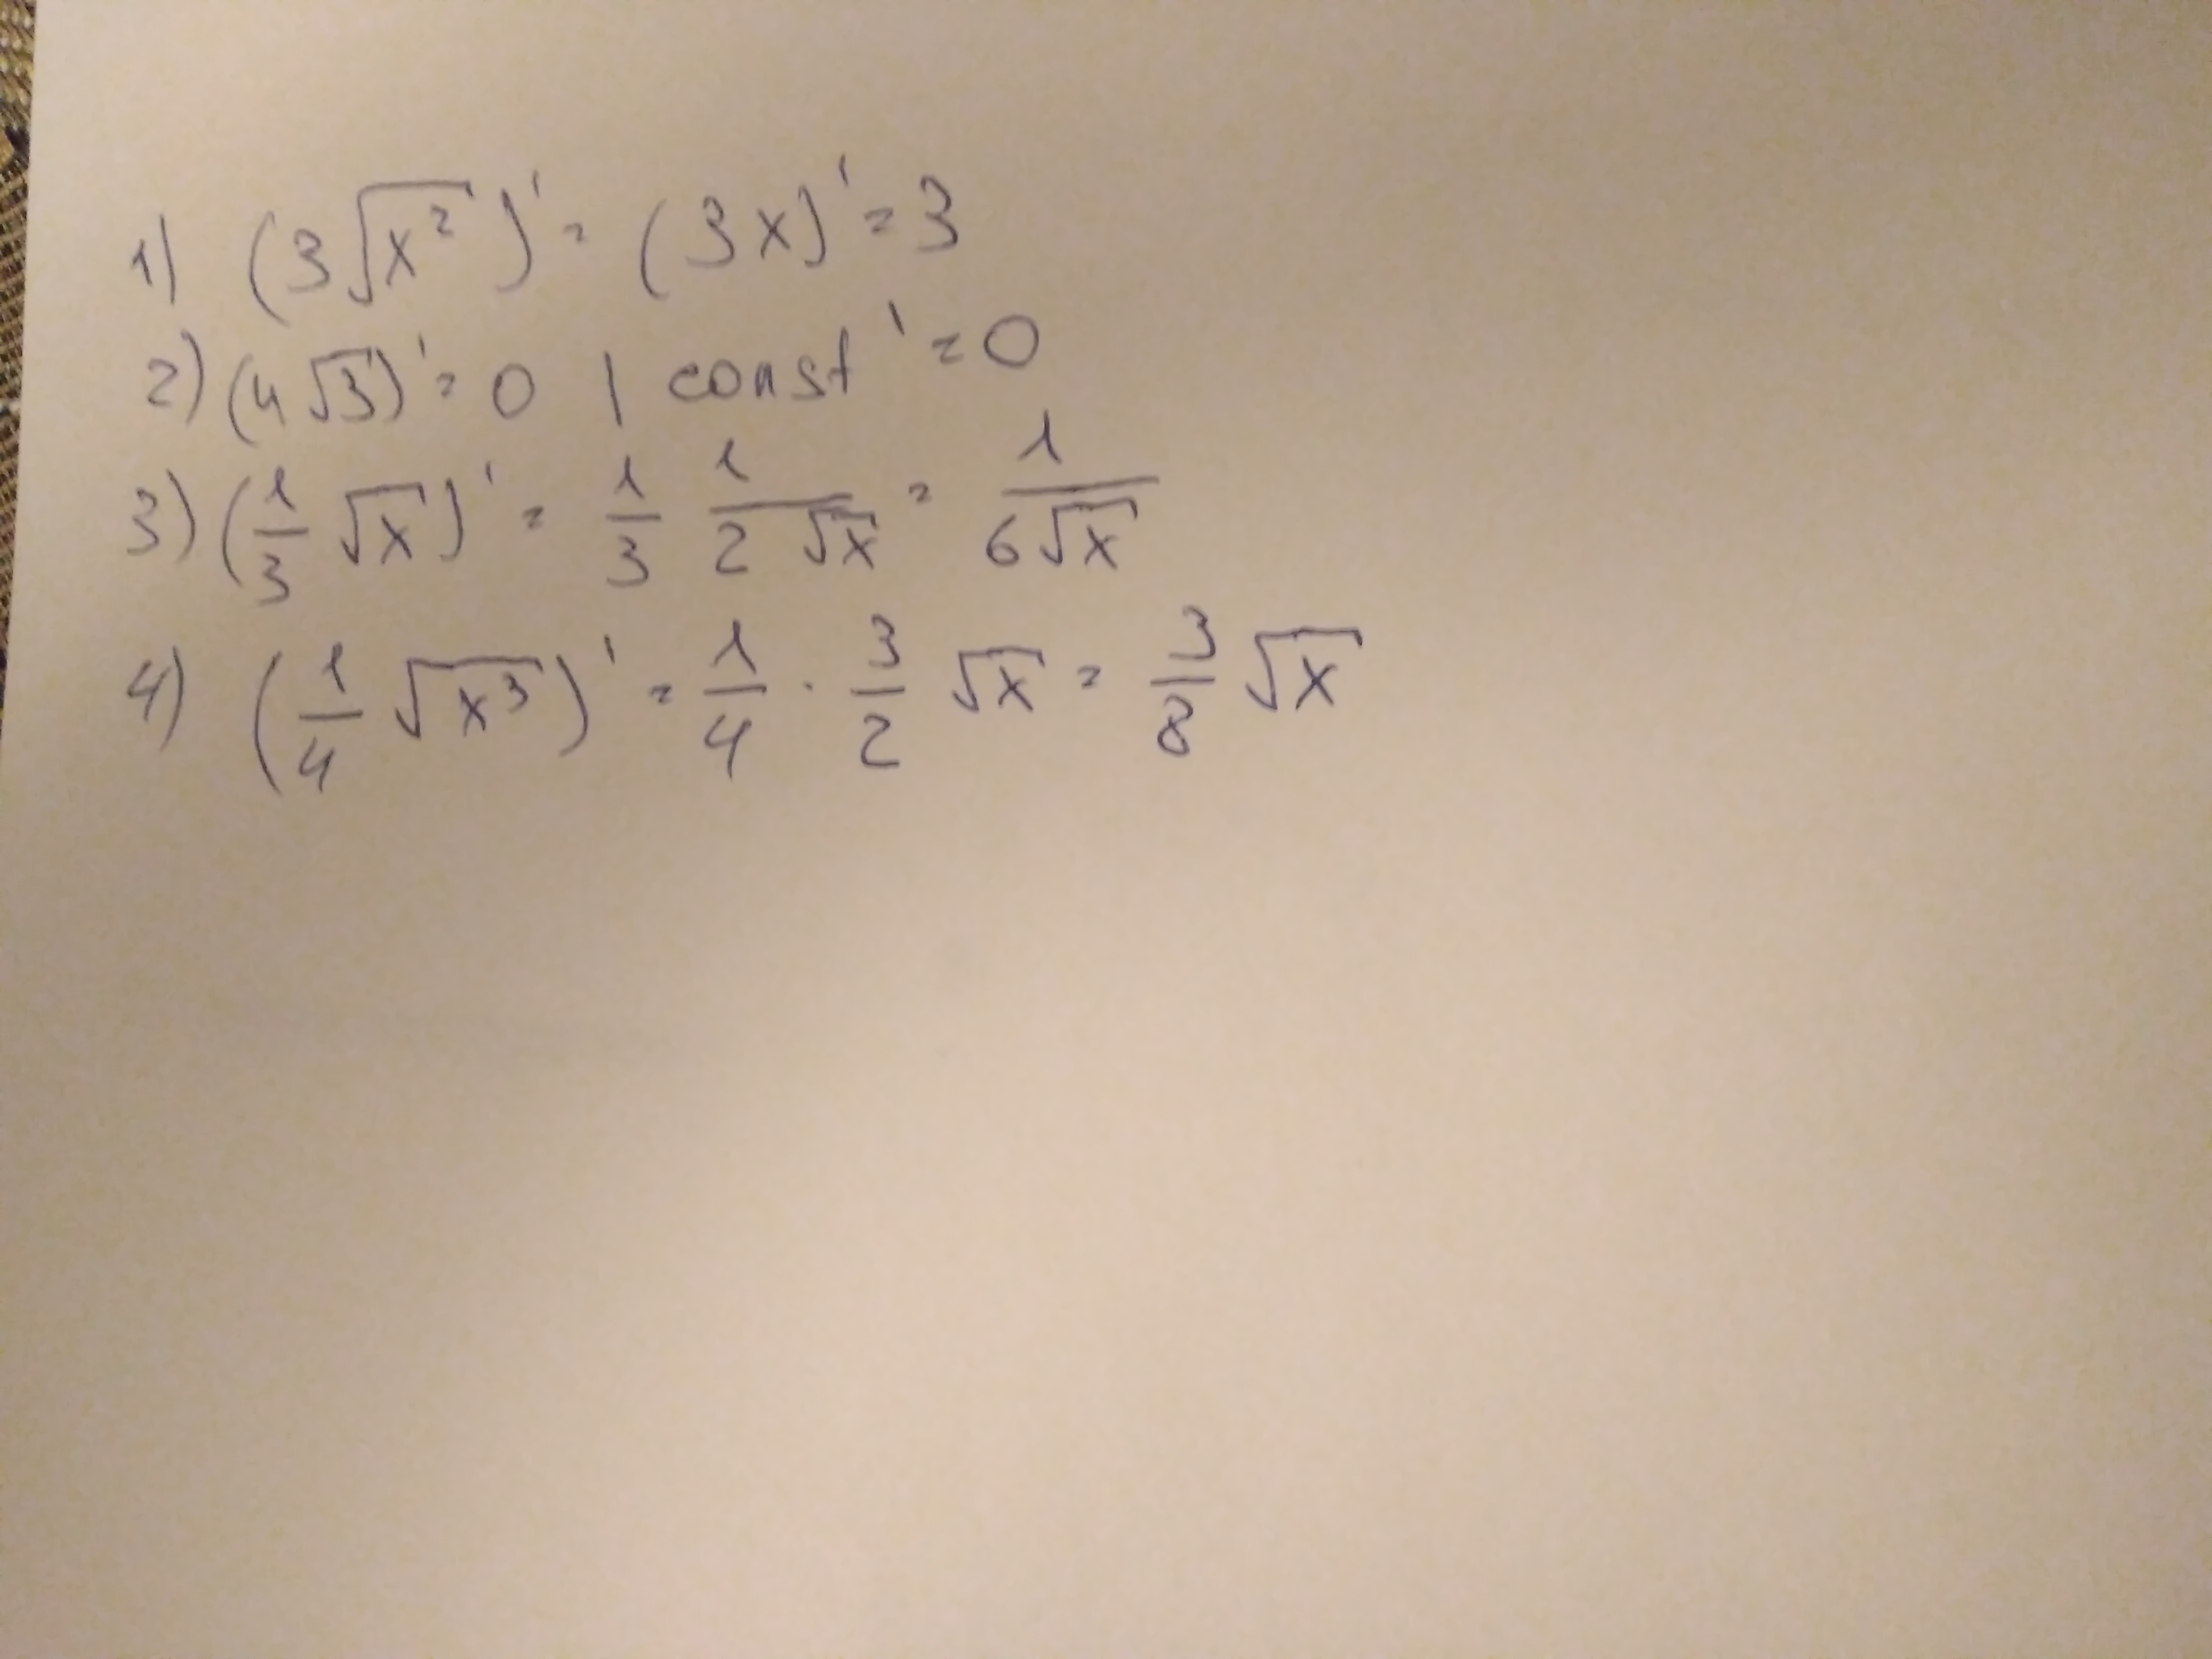 1) (3√x²)' = (3x)' = 3
2) (4√3)' = 0 | const' = 0
3) (1/3 √x)' = 1/3 1/(2√x) = 1/(6√x)
4) (1/4 √x³)' = 1/4 · 3/2 √x = 3/8 √x